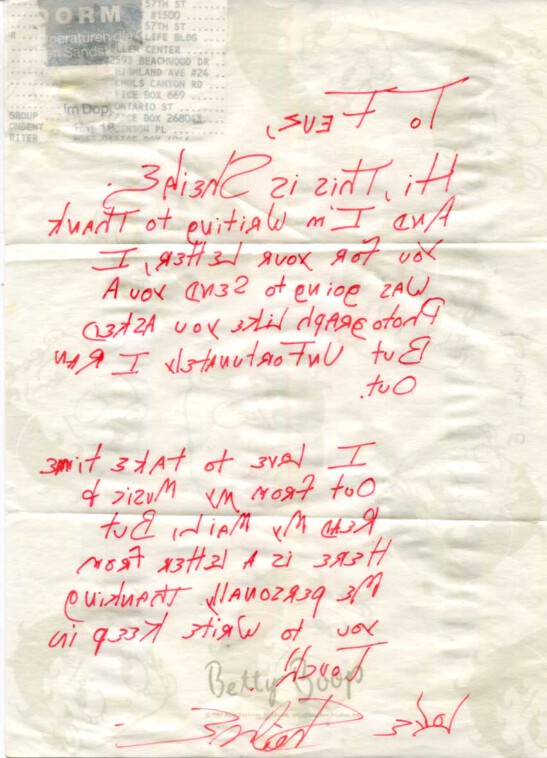 DORM
57TH ST
#1500
57TH ST
LIFE BLDG
CENTER
2593 BEACHWOOD DR
HIGHLAND AVE #24
CANYON RD
BOX 669
im Dop
ONTARIO ST
BOX 268043
To Feus,
Hi, This is
And I'm Writing to Thank
You For Your Letter, I
Was going to Send You A
Photograph Like You Asked
But Unfortunately I Ran
Out.
I have to take time
Out From My Music to
Read My Mail, But
Here is A Letter From
Me personally Thanking
You to Write Keep in
Touch.
Betty Boop
Love